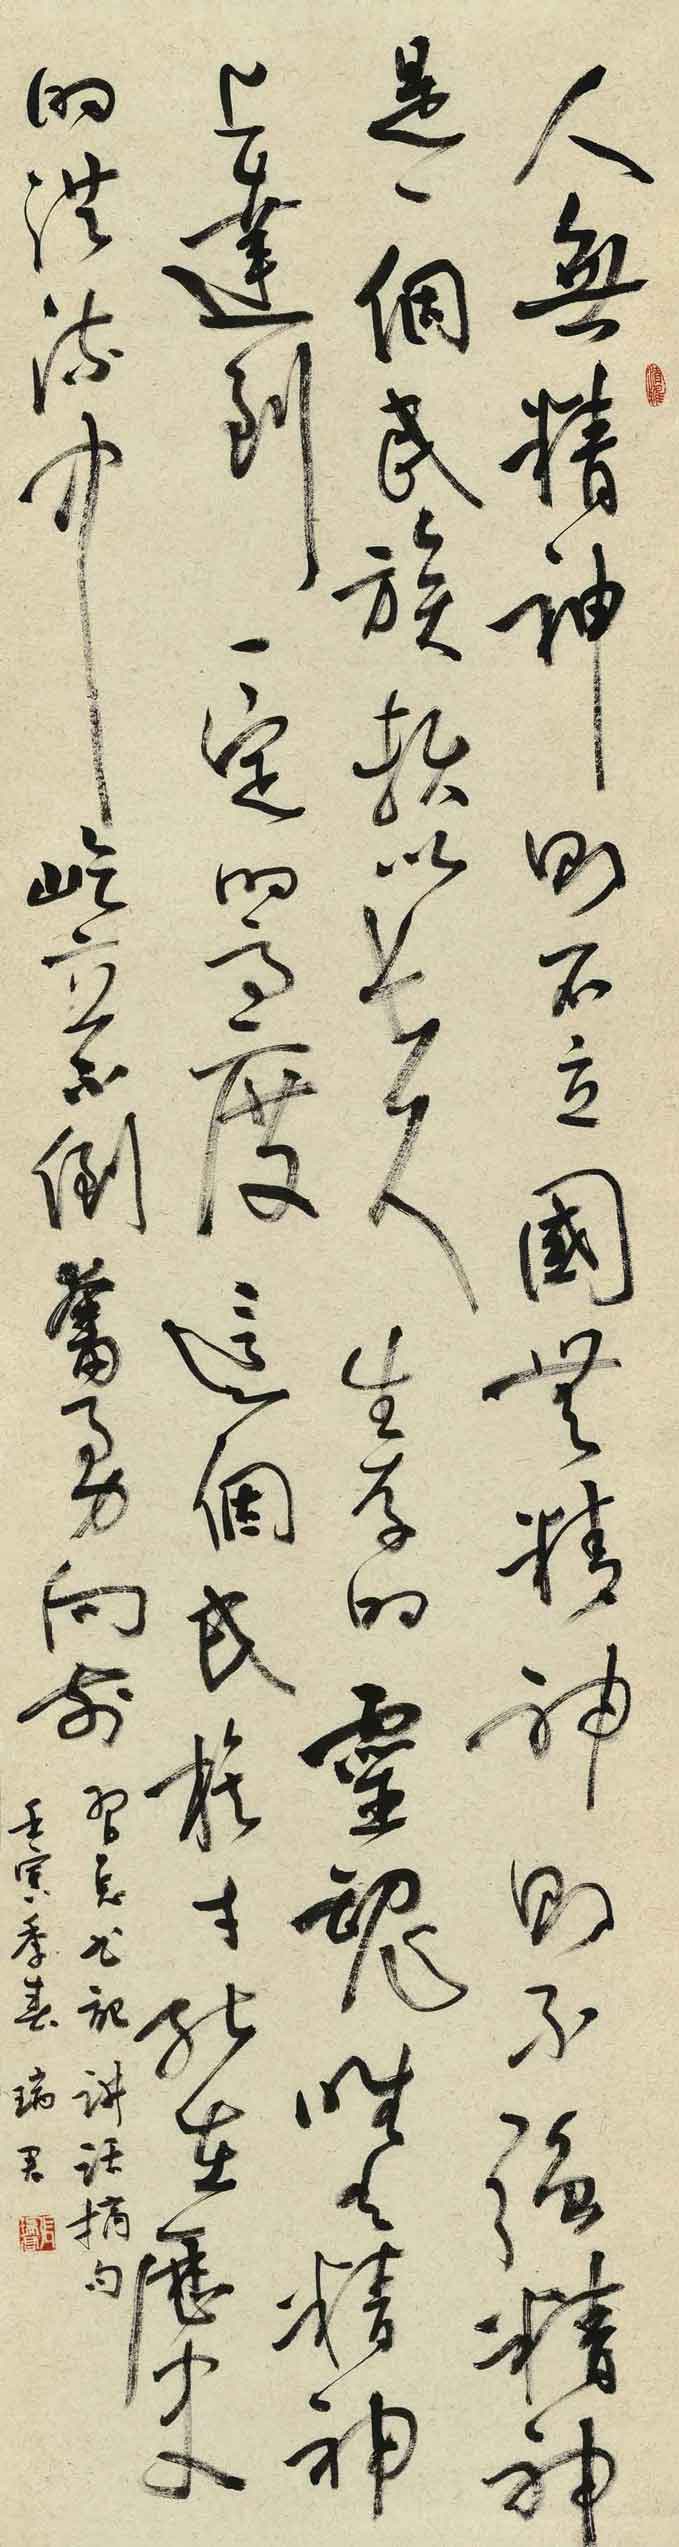 人無精神則不立國無精神則不强精神
是一個民族賴以長久生存的靈魂唯有精神
上達到一定的高度這個民族才能在歷史
的洪流中屹立不倒奮勇向前
習总书記讲話摘句
壬寅季春 瑞君